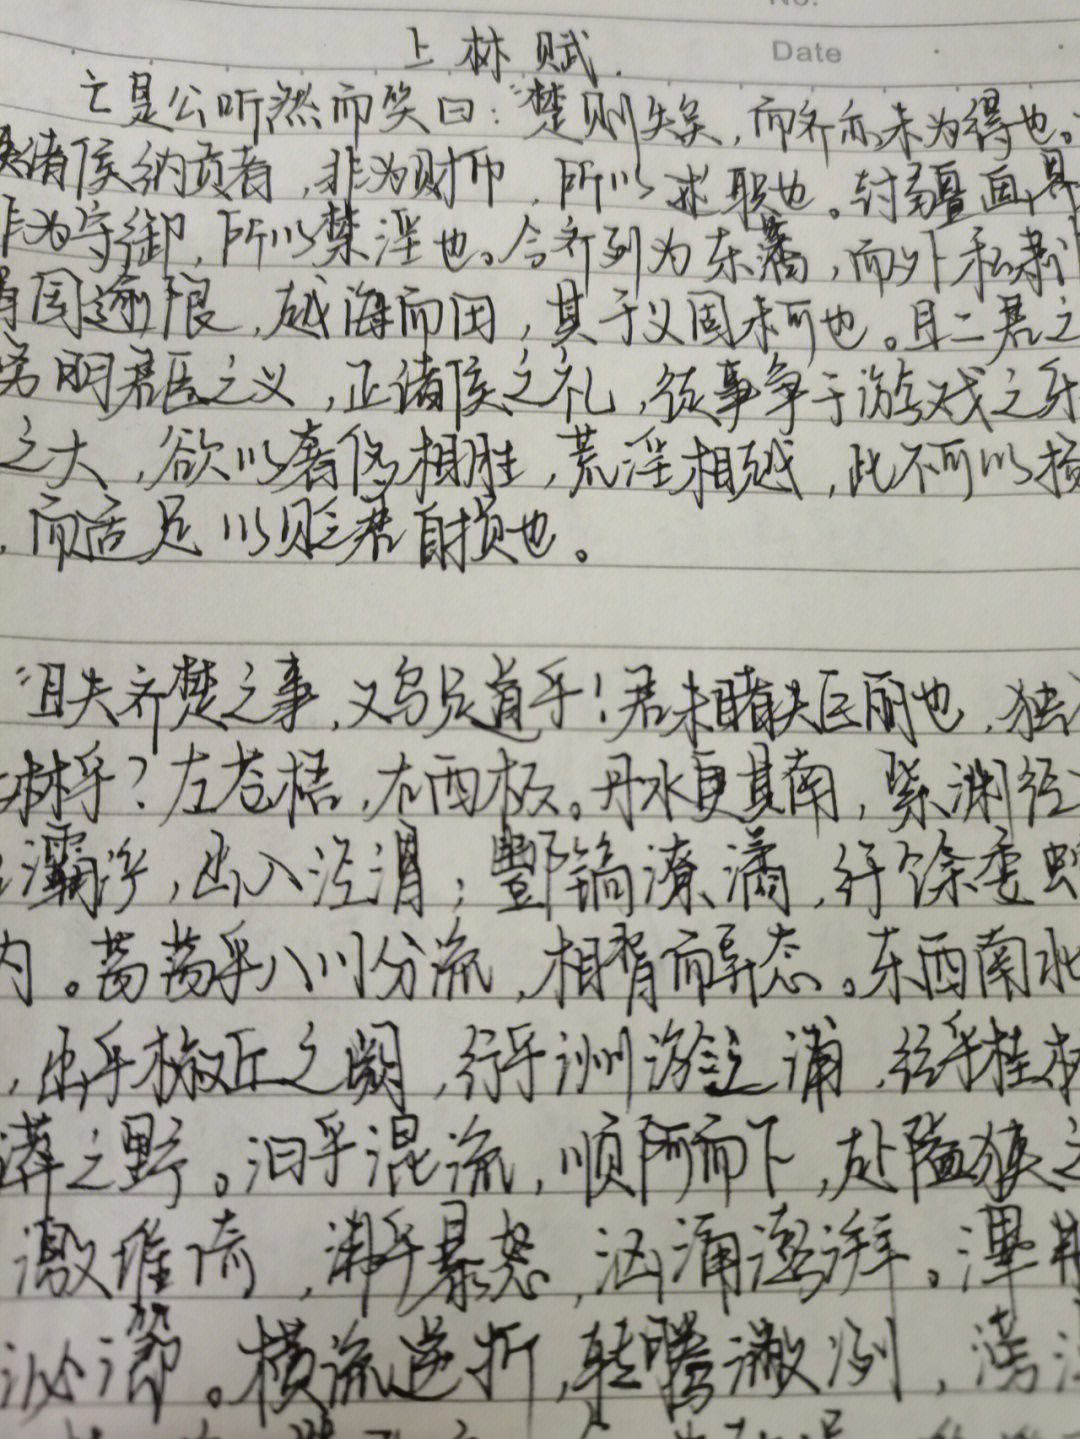 No.
Date
上林赋
亡是公听然而笑曰：“楚则失矣，而齐亦未为得也。
使诸侯纳贡者，非为财币，所以述职也。封疆画
非为守御，所以禁淫也。今齐列为东藩，而外私肃
国逾限，越海而田，其于义固未可也。且二君之
明君臣之义，正诸侯之礼，徒事争于游戏之乐
之大，欲以奢侈相胜，荒淫相越，此不可以扬
，而适足以贬君自损也。
“且夫齐楚之事，又乌足道乎！君未睹夫巨丽也，独
林乎？左苍梧，右西极。丹水更其南，紫渊径
灞浐，出入泾渭；酆镐潦潏，纡馀委蛇
内。荡荡乎八川分流，相背而异态。东西南北
，出乎椒丘之阙，行乎洲淤之浦，经乎桂林
莽之野。汩乎混流，顺阿而下，赴隘狭之
激堆埼，沸乎暴怒，汹涌澎湃。滭
泌㴉。横流逆折，转腾潎洌，滂